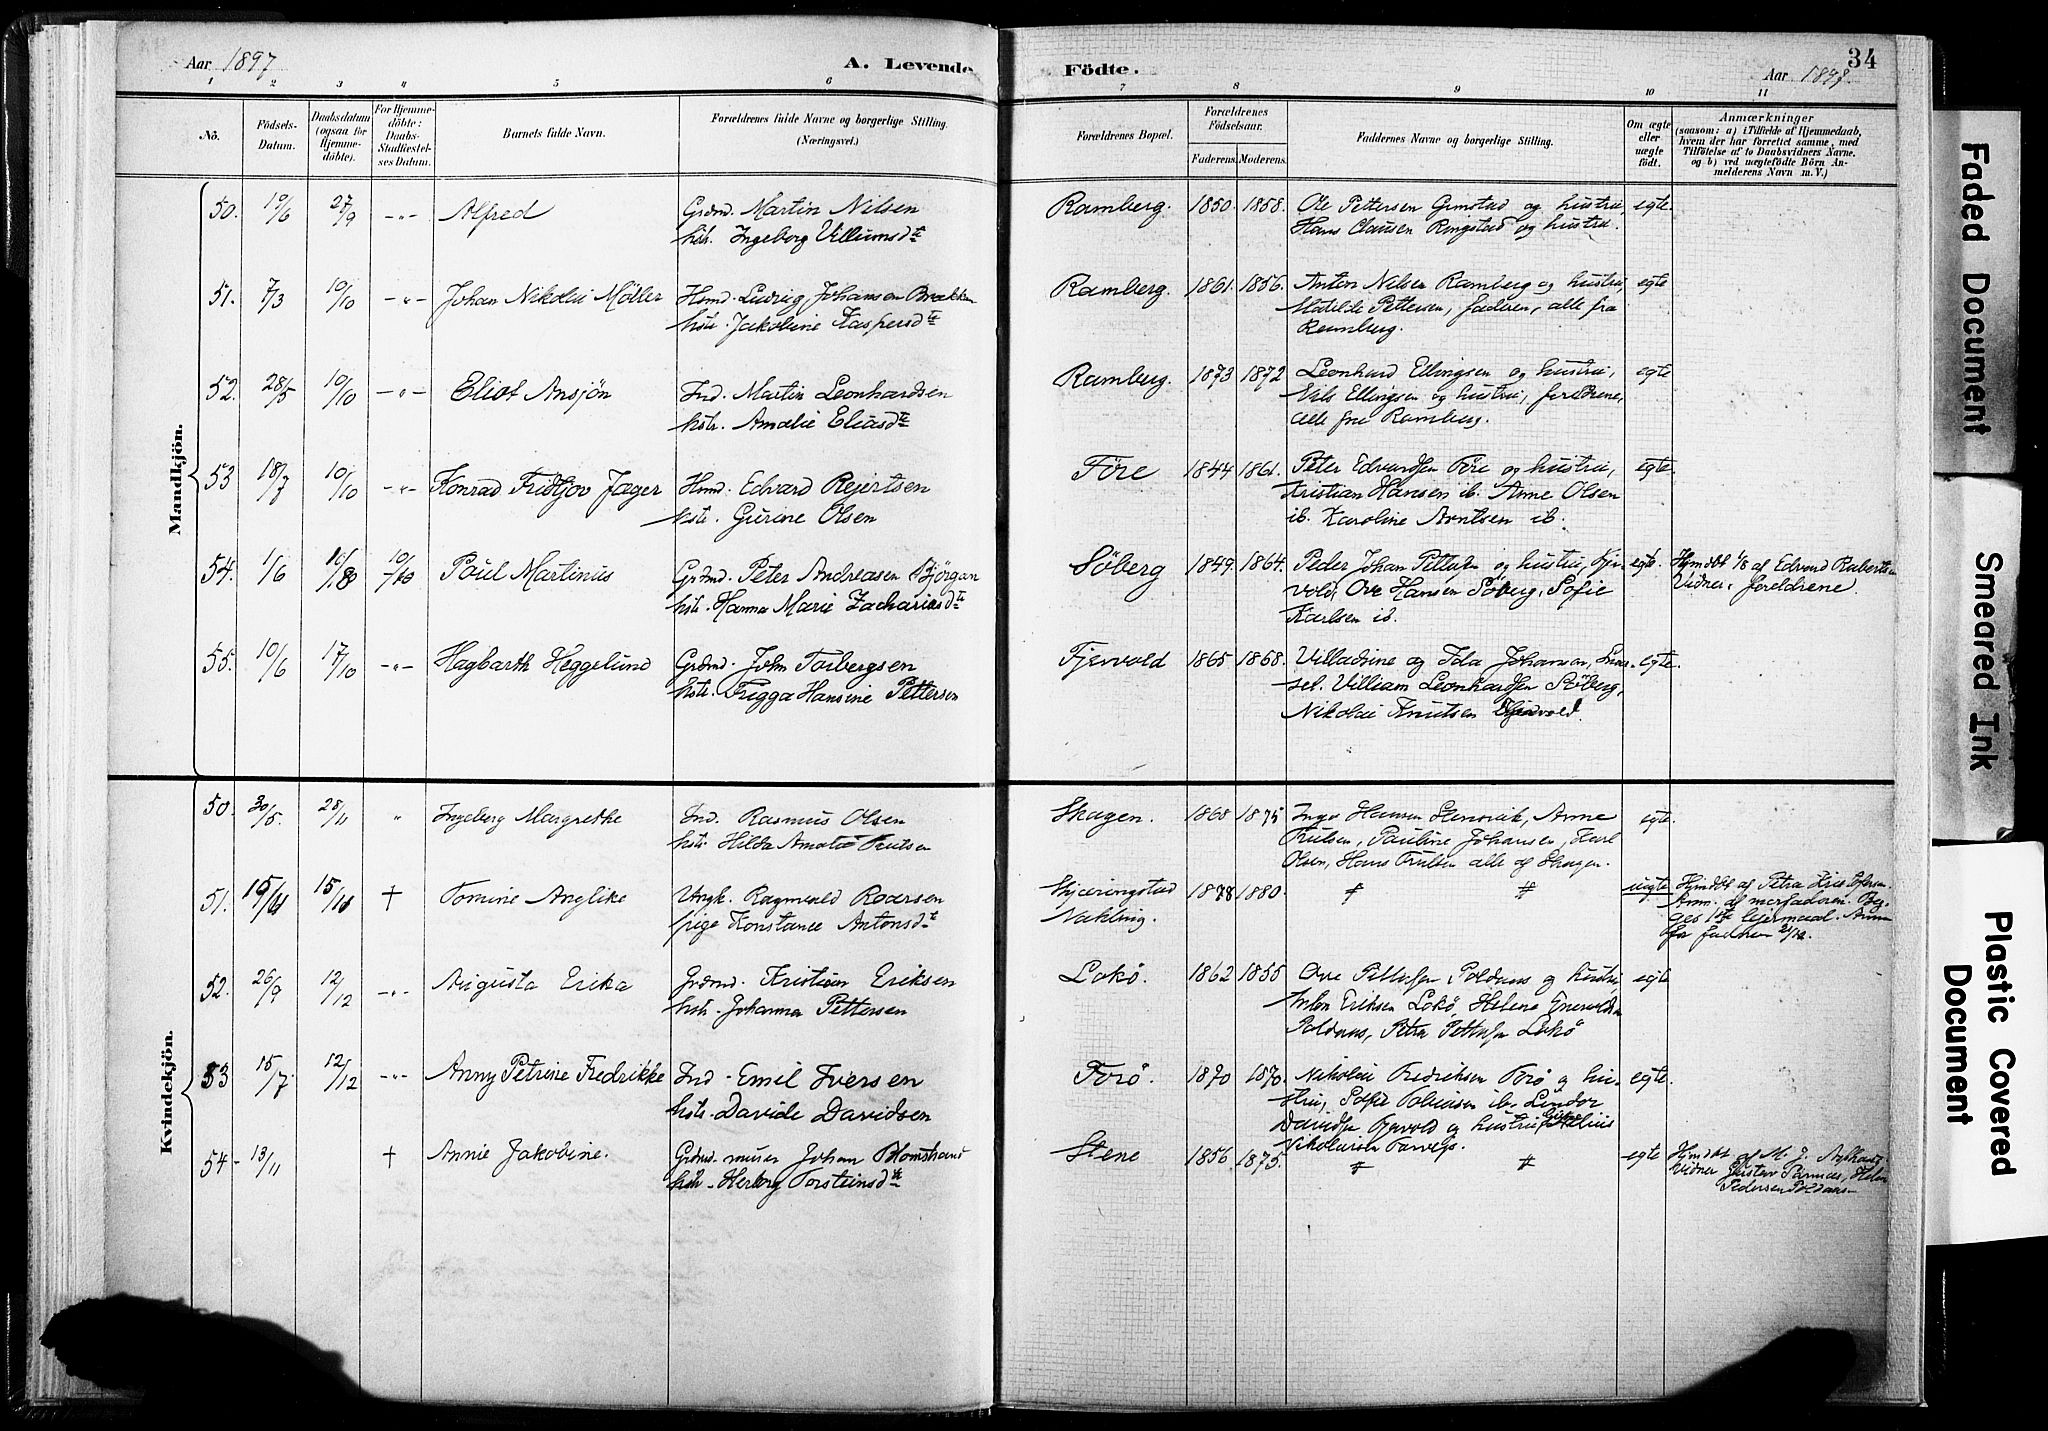 Aar 1897
A. Levende Födte.
Aar 1897.
34
1 2 3 4 5 6 7 8 9 10 11
No.
Födsels-Datum.
Daabsdatum (ogsaa for Hjemmedöbte).
For Hjemmedöbte: Daabs-Stadfæstelses Datum.
Barnets fulde Navn.
Forældrenes fulde Navne og borgerlige Stilling. (Næringsvei.)
Forældrenes Bopæl.
Forældrenes Födselsaar.
Faderens. Moderens.
Faddernes Navne og borgerlige Stilling.
Om ægte eller uægte födt.
Anmærkninger
(saasom: a) i Tilfælde af Hjemmedaab, hvem der har forrettet samme, med Tilföielse af to Daabsvidners Navne, og b) ved uægtefödte Börn Anmelderens Navn m. V.)
Mandkjön.
50. 10/6 27/9 -"- Alfred
Grdmd. Martin Nilsen
hstr. Ingeborg Villumsdt
Ramberg. 1850. 1858.
Ole Pettersen Grnstad og hustru, egte.
Hans Clausen Ringstad og hustru.
51. 7/3 10/10 -"- Johan Nikolai Möller
Hsmd. Ludvig Johansen Brækken
hstr. Jakobine Kaspersdt
Ramberg. 1861. 1856.
Anton Nilsen Ramberg og hustru, egte
Matilde Pettersen, faderen, alle fra
Ramberg.
52. 28/5 10/10 -"- Eliot Ansjön
Ind. Martin Leonhardsen
hstr. Amalie Eliasdt
Ramberg. 1873 1872
Leonhard Ellingsen og hustru, egte
Nils Ellingsen og hustru, foreldrene,
alle fra Ramberg.
53 18/7 10/10 -"- Konrad Fridtjov Jæger
Hsmd. Edvard Rejertsen
hstr. Gurine Olsen
Före 1844 1861.
Peter Edvardsen Före og hustru, egte
Kristian Hansen ib. Arne Olsen
ib. Karoline Arntsen ib.
54. 1/6 10/10 Poul Martinus
Grdmd. Peter Andreasen Björgan
hstr. Hanna Marie Zachariasdt
Söberg 1849. 1864.
Peder Johan Pettersen og hustru, Fjær- egte.
vold, Ove Hansen Söberg, Sofie
Karlsen ib.
Hjmdbt 1/8 af Edvard Robertsen
Vidner, foreldrene.
55. 10/6 17/10 -"- Hagbarth Heggelund
Grdmd. John Torbergsen
hstr. Frigga Hansine Pettersen
Fjervold 1865 1868.
Villadsine og Ida Johansen, egte.
sel. Villiam Leonhardsen Söberg,
Nikolai Knutsen
Kvindekjön.
50. 30/5 28/11 " Ingeborg Margrethe
Ind. Rasmus Olsen
hstr. Hilda Amalie
Skagen. 1868 1875
Inga Hansen Stenvik, Anne egte.
Pauline Johansen, Karl
Olsen, Hans alle af Skagen.
51. 15/11 † Tomine Anglike
Ungk. Ragnvald Roarsen
pige Konstance Antonsdt
Skjæringstad
Nakling.
1878 1880.
uegte
Hjmdbt af Petra Kristofersen.
Anm. af morfaderen. Beg-
ges 1ste leiermaal.
fra faderen 21/12.
52. 26/9 12/12 -"- Augusta Erika
Grdmd. Kristian Eriksen
hstr. Johanna Pettersen
Lokö. 1862 1855
Ove Pettersen Poldnes og hustru, egte
Anton Eriksen Lokö, Helene
Poldnes, Petra Pettersen Lokö
53 15/7 12/12 -"- Anny Petrine Fredrikke
Ind. Emil Iversen
hstr. Davide Davidsen
Forö. 1870 1870.
Nikolai Fredriksen Forö og hu- egte.
stru, Sofie Tobiasen ib. Lindor
Davidsen Fjærvold og hustru
Nikolaisen
54- 13/11 † Annie Jakobine.
Grdmd. murer Johan Blomstrand
hstr. Herborg Torstensdt
Stene 1856. 1875.
egte
Hjmdbt af M. J.
Vidner Gustav
Pedersen Poldnes
Faded Document
Smeared Ink
Plastic Covered Document